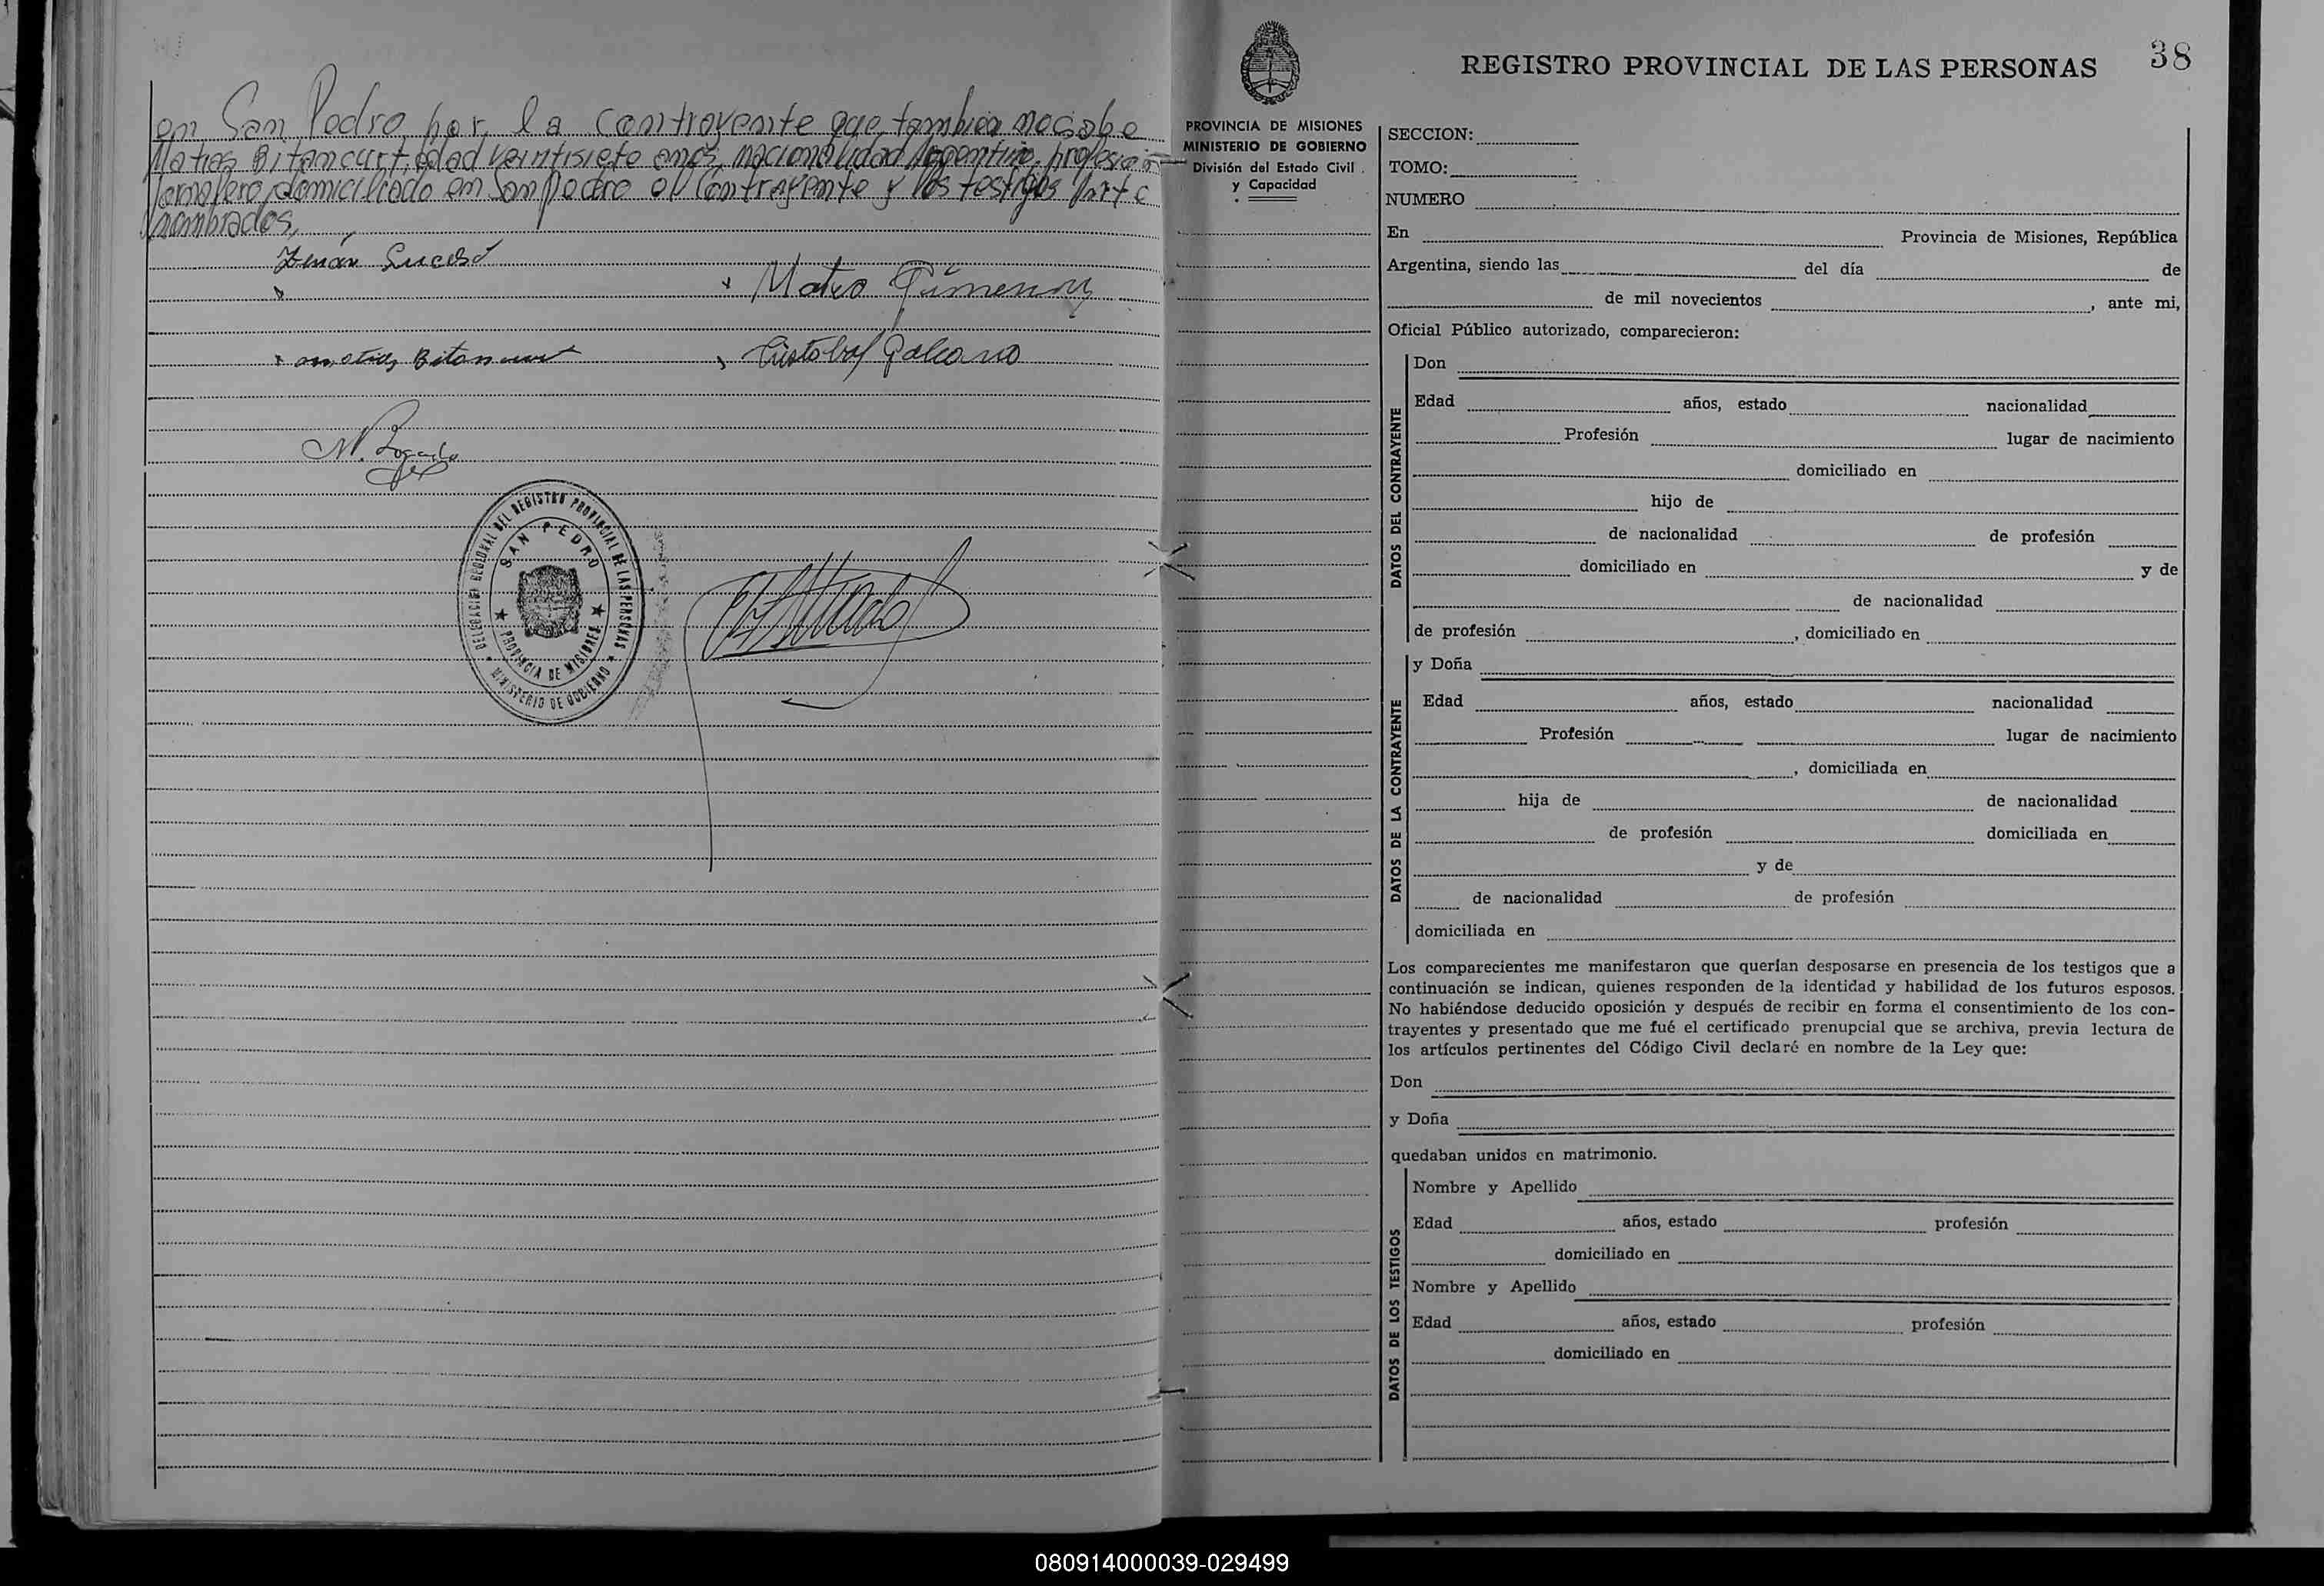 en San Pedro, por la contrayente que tambien no sabe
Matias Bitancurt, edad veintisiete años, nacionalidad Argentino, profesión
Jornalero, domiciliado en San Pedro el Contrayente y los testigos
nombrados.
Mateo
Cristobal Galeano
DELEGACION REGIONAL DEL REGISTRO PROVINCIAL DE LAS PERSONAS
SAN PEDRO
PROVINCIA DE MISIONES
MINISTERIO DE GOBIERNO
38
REGISTRO PROVINCIAL DE LAS PERSONAS
PROVINCIA DE MISIONES
MINISTERIO DE GOBIERNO
División del Estado Civil
y Capacidad
SECCION:
TOMO:
NUMERO
En Provincia de Misiones, República
Argentina, siendo las del día de
de mil novecientos , ante mi,
Oficial Público autorizado, comparecieron:
DATOS DEL CONTRAYENTE
Don
Edad años, estado nacionalidad
Profesión lugar de nacimiento
domiciliado en
hijo de
de nacionalidad de profesión
domiciliado en y de
de nacionalidad
de profesión , domiciliado en
DATOS DE LA CONTRAYENTE
y Doña
Edad años, estado nacionalidad
Profesión lugar de nacimiento
, domiciliada en
hija de de nacionalidad
de profesión domiciliada en
y de
de nacionalidad de profesión
domiciliada en
Los comparecientes me manifestaron que querían desposarse en presencia de los testigos que a
continuación se indican, quienes responden de la identidad y habilidad de los futuros esposos.
No habiéndose deducido oposición y después de recibir en forma el consentimiento de los con-
trayentes y presentado que me fué el certificado prenupcial que se archiva, previa lectura de
los artículos pertinentes del Código Civil declaré en nombre de la Ley que:
Don
y Doña
quedaban unidos en matrimonio.
DATOS DE LOS TESTIGOS
Nombre y Apellido
Edad años, estado profesión
domiciliado en
Nombre y Apellido
Edad años, estado profesión
domiciliado en
080914000039-029499